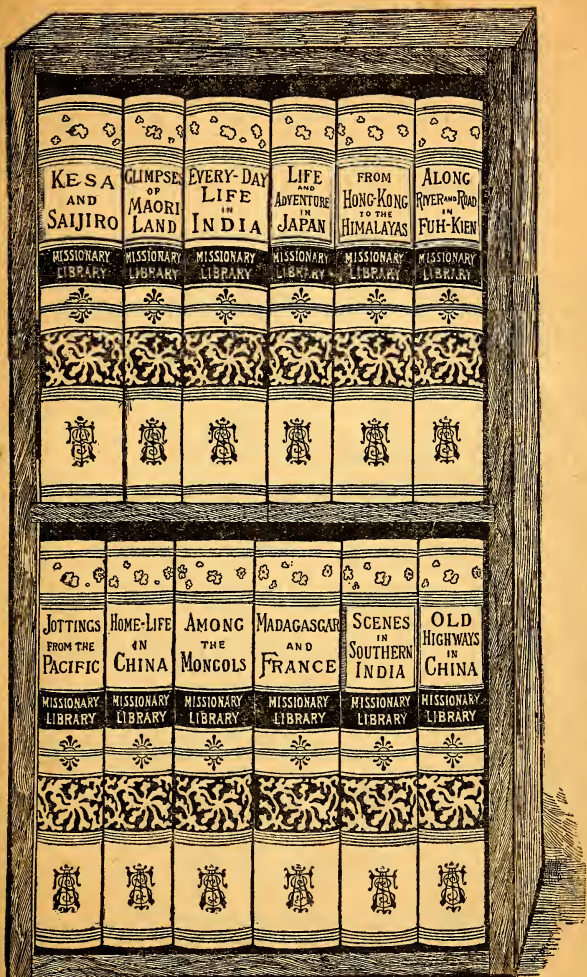 KESA
AND
SAIJIRO
MISSIONARY
LIBRARY
GLIMPSES
OF
MAORI
LAND
MISSIONARY
LIBRARY
EVERY-DAY
LIFE
IN
INDIA
MISSIONARY
LIBRARY
LIFE
AND
ADVENTURE
IN
JAPAN
MISSIONARY
LIBRARY
FROM
HONG-KONG
TO THE
HIMALAYAS
MISSIONARY
LIBRARY
ALONG
RIVER AND ROAD
IN
FUH-KIEN
MISSIONARY
LIBRARY
JOTTINGS
FROM THE
PACIFIC
MISSIONARY
LIBRARY
HOME-LIFE
IN
CHINA
MISSIONARY
LIBRARY
AMONG
THE
MONGOLS
MISSIONARY
LIBRARY
MADAGASCAR
AND
FRANCE
MISSIONARY
LIBRARY
SCENES
IN
SOUTHERN
INDIA
MISSIONARY
LIBRARY
OLD
HIGHWAYS
IN
CHINA
MISSIONARY
LIBRARY